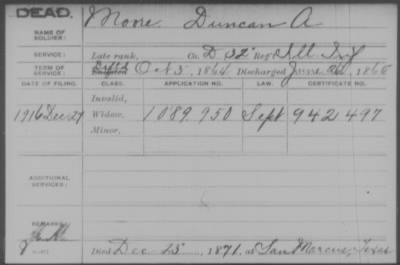 DEAD.
NAME OF SOLDIER: Moore, Duncan A
SERVICE: Late rank, Co. D 32" Reg't Ill. Inf
TERM OF SERVICE: Enlisted Oct 5, 1864 Discharged June, 1865
DATE OF FILING. CLASS. APPLICATION NO. LAW. CERTIFICATE NO.
Invalid,
1916 Dec 27 Widow, 1089950 Sept 942497
Minor,
ADDITIONAL SERVICES:
REMARKS:
Died Dec 25, 1871, at San Marcus, Texas